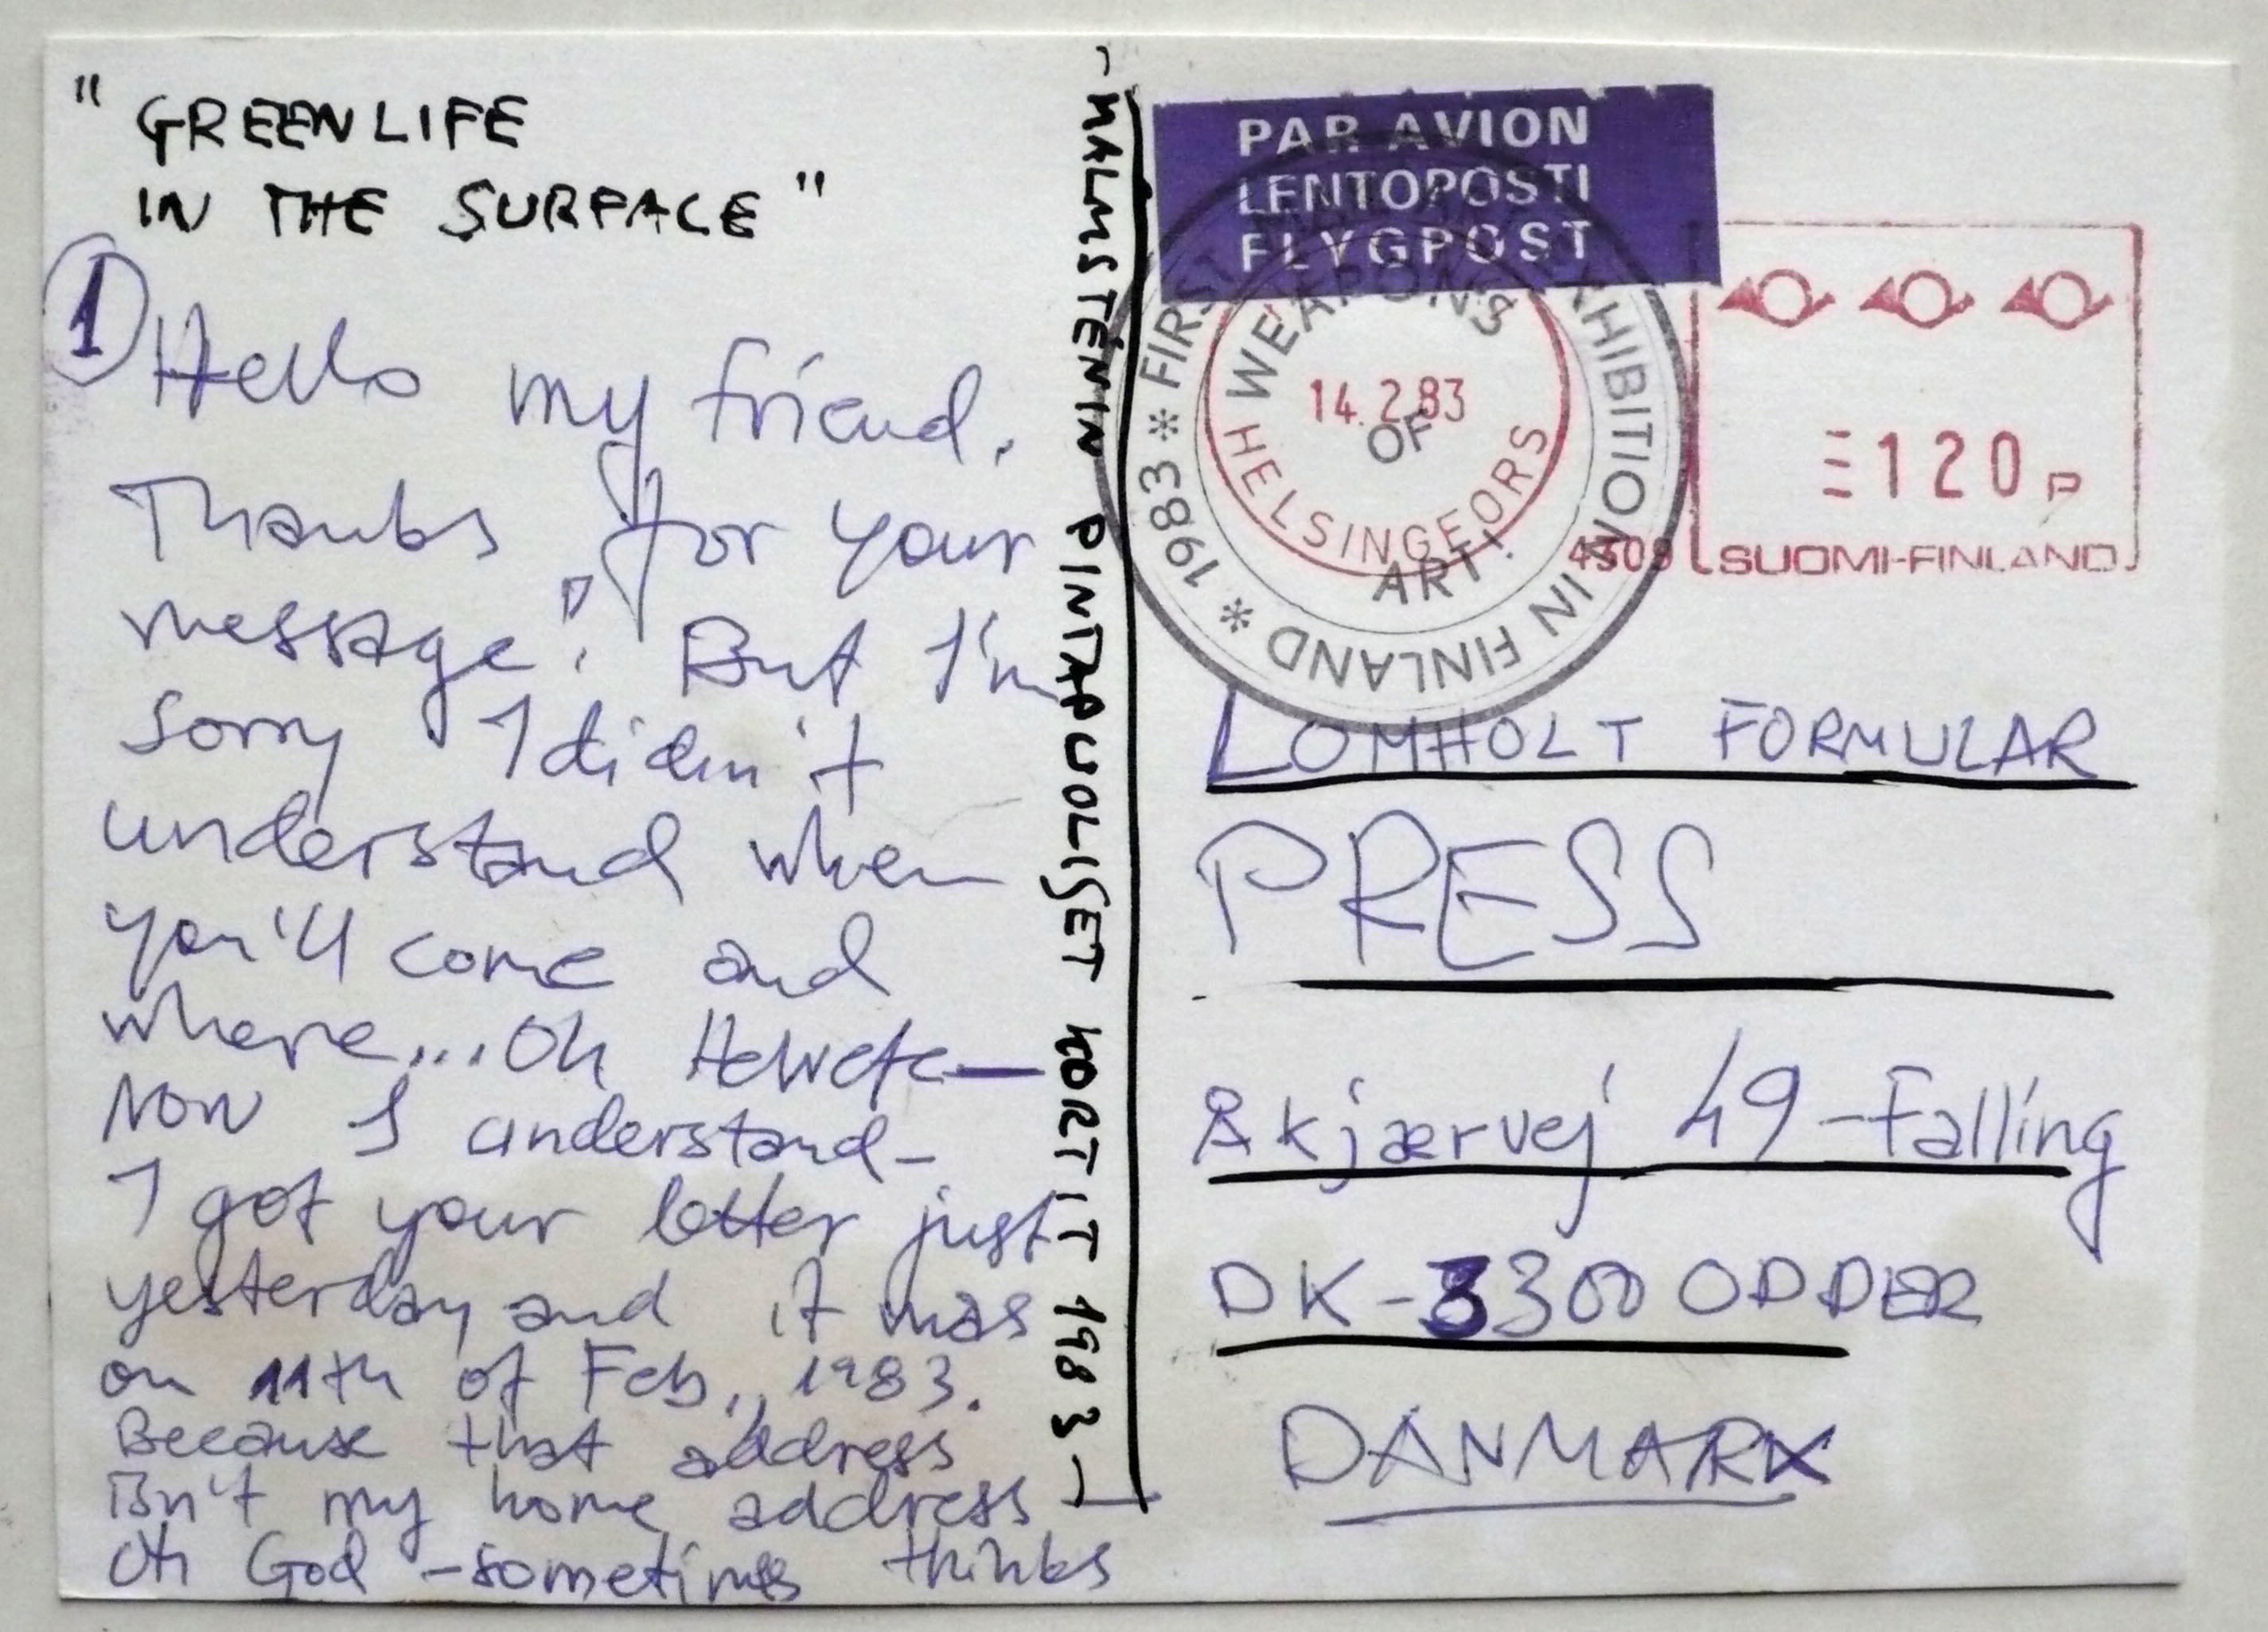 "GREENLIFE
IN THE SURFACE"
1
Hello my friend.
Thanks for your
message! But I'm
sorry I didin't
understand when
you'll come and
where...Oh Helvete—
Now I understand-
I got your letter just
yesterday and it was
on 11th of Feb., 1983.
Because that address
isn't my home address
Oh God -sometimes thinks
-MALMSTÉNIN PINTAPUOLISET KORTIT 1983-
PAR AVION
LENTOPOSTI
FLYGPOST
* FIRST EXHIBITION IN FINLAND * 1983
WEAPONS
OF
ART!
14.2.83
HELSINGFORS
120 P
4309
SUOMI-FINLAND
LOMHOLT FORMULAR
PRESS
Akjærvej 49-Falling
DK-8300 ODDER
DANMARK